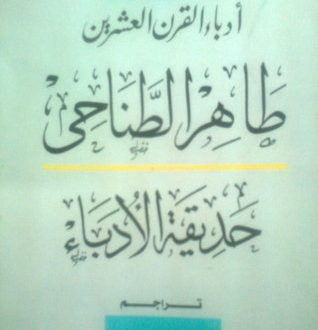 أدباء القرن العشرين
طَاهِر الطَّنَاحِى
حَدِيقَة الأُدَبَاء
تراجم